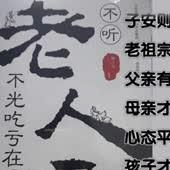 不听
老人
不光吃亏在
子安则
老祖宗
父亲有
母亲才
心态平
孩子才